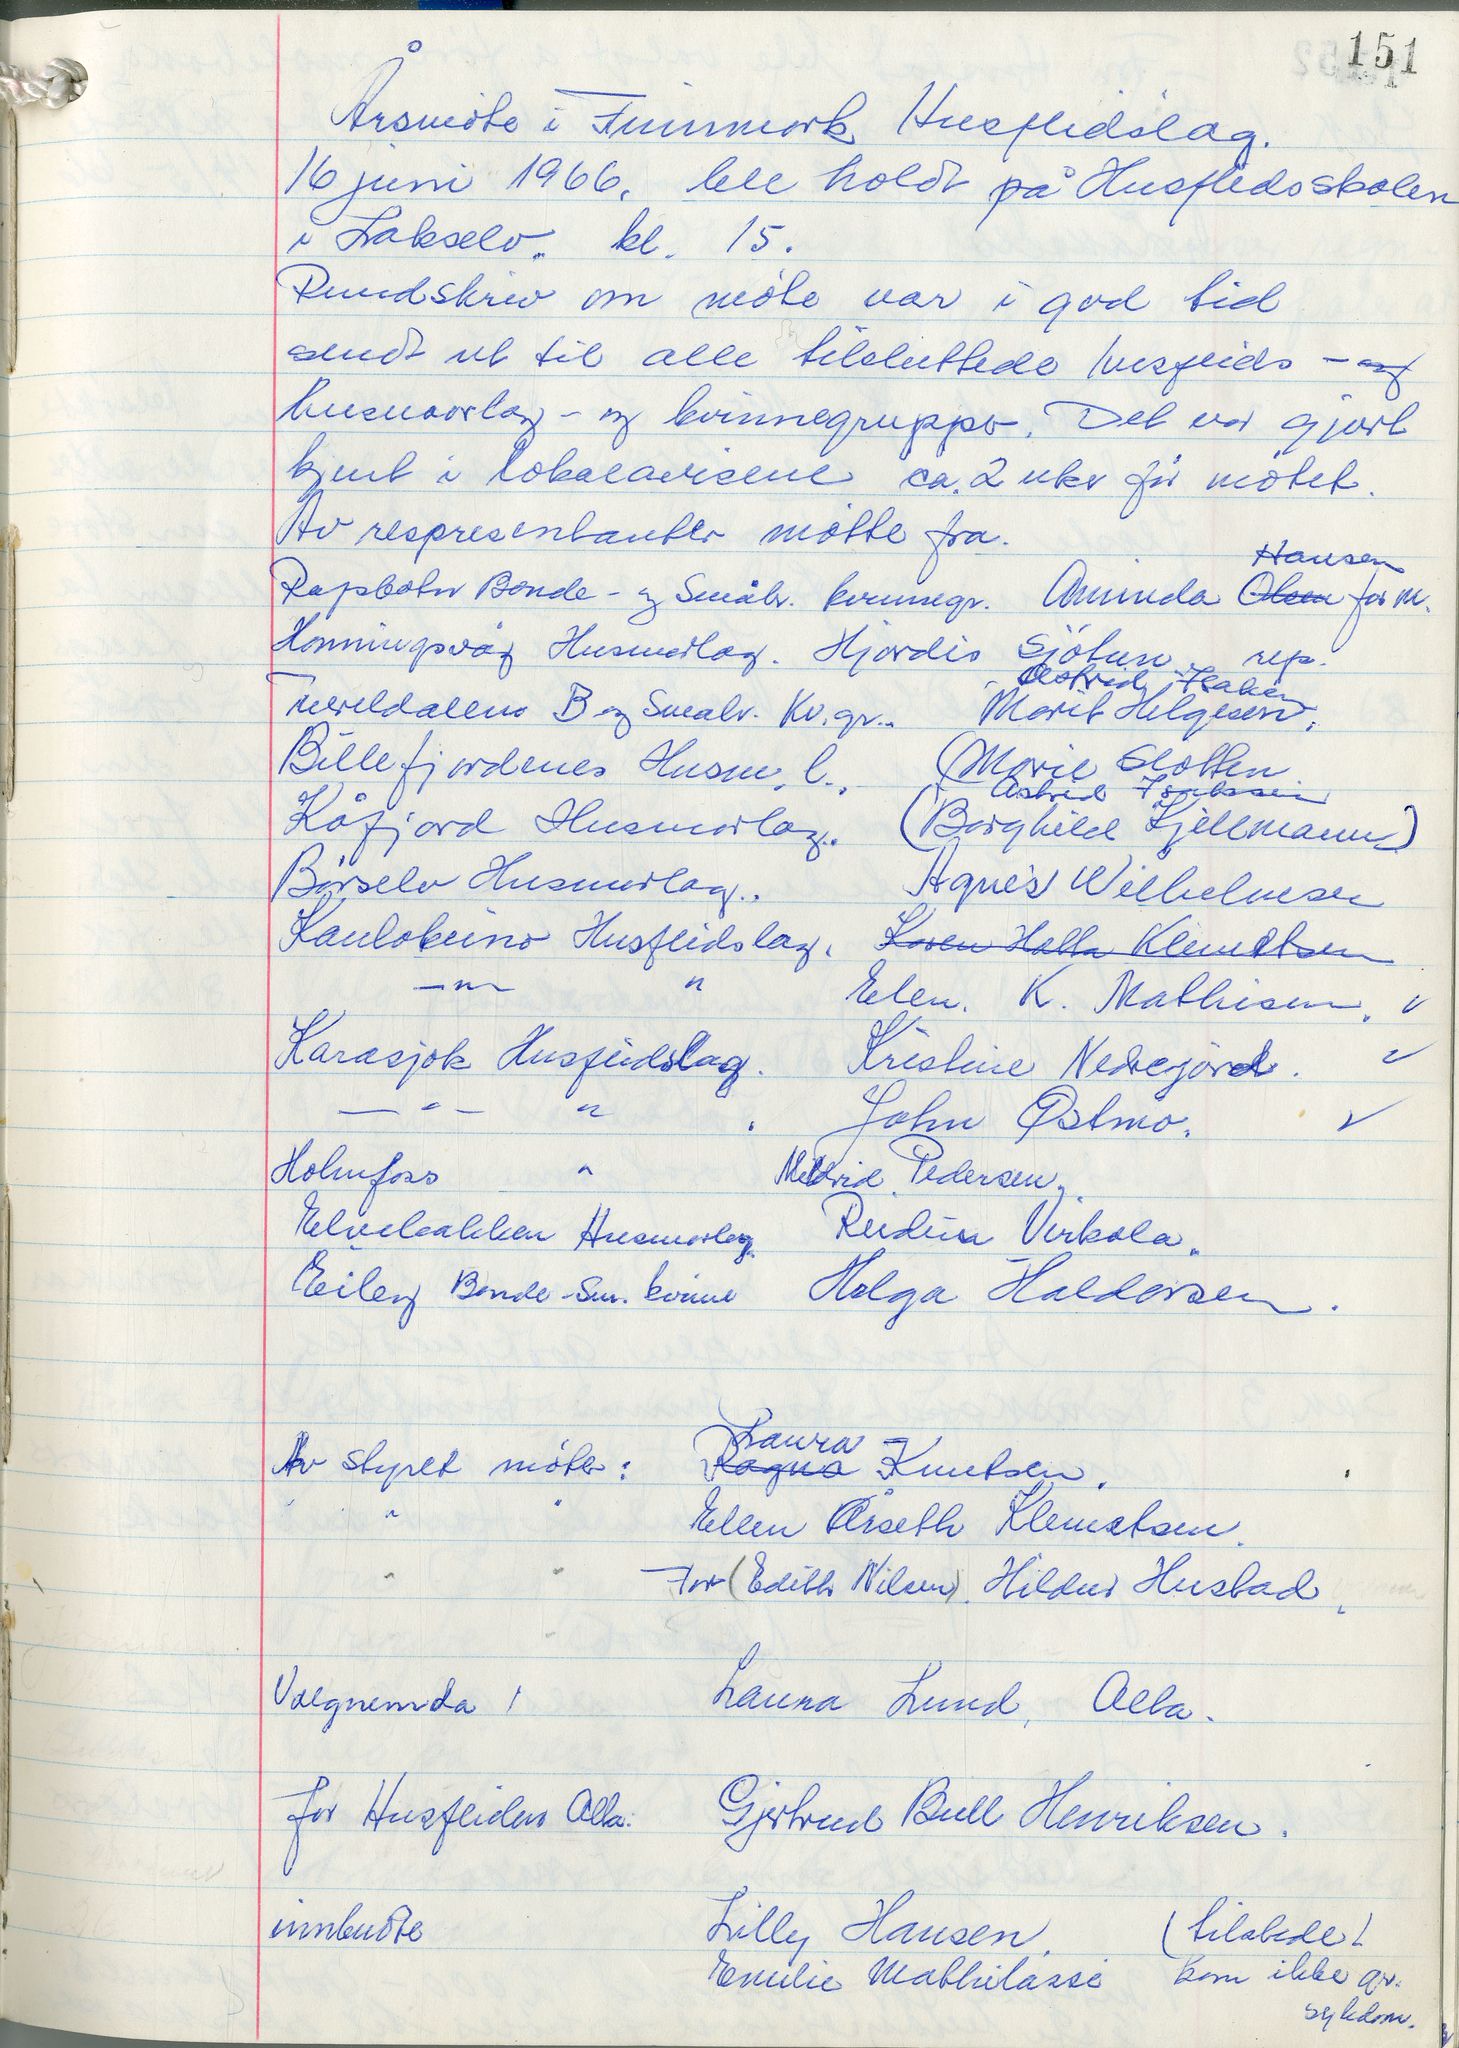 151
Årsmöte i Finnmark Husflidslag.
16 juni 1966, ble holdt på Husflidsskolen
i Lakselv. kl. 15.
Rundskriv om möte var i god tid
sendt ut til alle tilsluttede husflids - og
husmorlag - og kvinnegrupper. Det var gjort
kjent i lokalavisene ca. 2 uker för mötet.
Av respresentanter mötte fra.
Hansen
Repsbotn Bonde - og Småbr. kvinnegr. Aminda Olsen for m.
Honningsvåg Husmorlag. Hjördis Sjötun rep.
Astrid Isaksen
B og Småbr. Kv.gr.. Marit Helgesen,
Billefjordenes Husm.l., (Marie Slotten
Astrid Isaksen
Kåfjord Husmorlag. (Borghild Kjellmann)
Börselv Husmorlag.. Agnes Wilhelmsen
Kautokeino Husflidslag. Karen Hætta Klemetsen
— " — " Elen. K. Mathisen. ✓
Karasjok Husflidslag. Kristine Nedregård. ✓
— " — " . John Østmo. ✓
Holmfoss " Mildrid Pedersen.
Elvebakken Husmorlag. Reidun Virkola.
Eiby Bonde - Sm. kvinne Helga Haldorsen.
Laura
Av styret möter: Ragna Knutsen.
" " Ellen Årseth Klemetsen.
" " For (Edith Nilsen). Hildur Hustad.
Valgnemda : Laura Lund, Alta.
for Husfliden Alta: Gjertrud Bull Henriksen.
innbudte Lilly Hansen. (tilstede)
Emilie Mathilassi kom ikke gr.
sykdom.